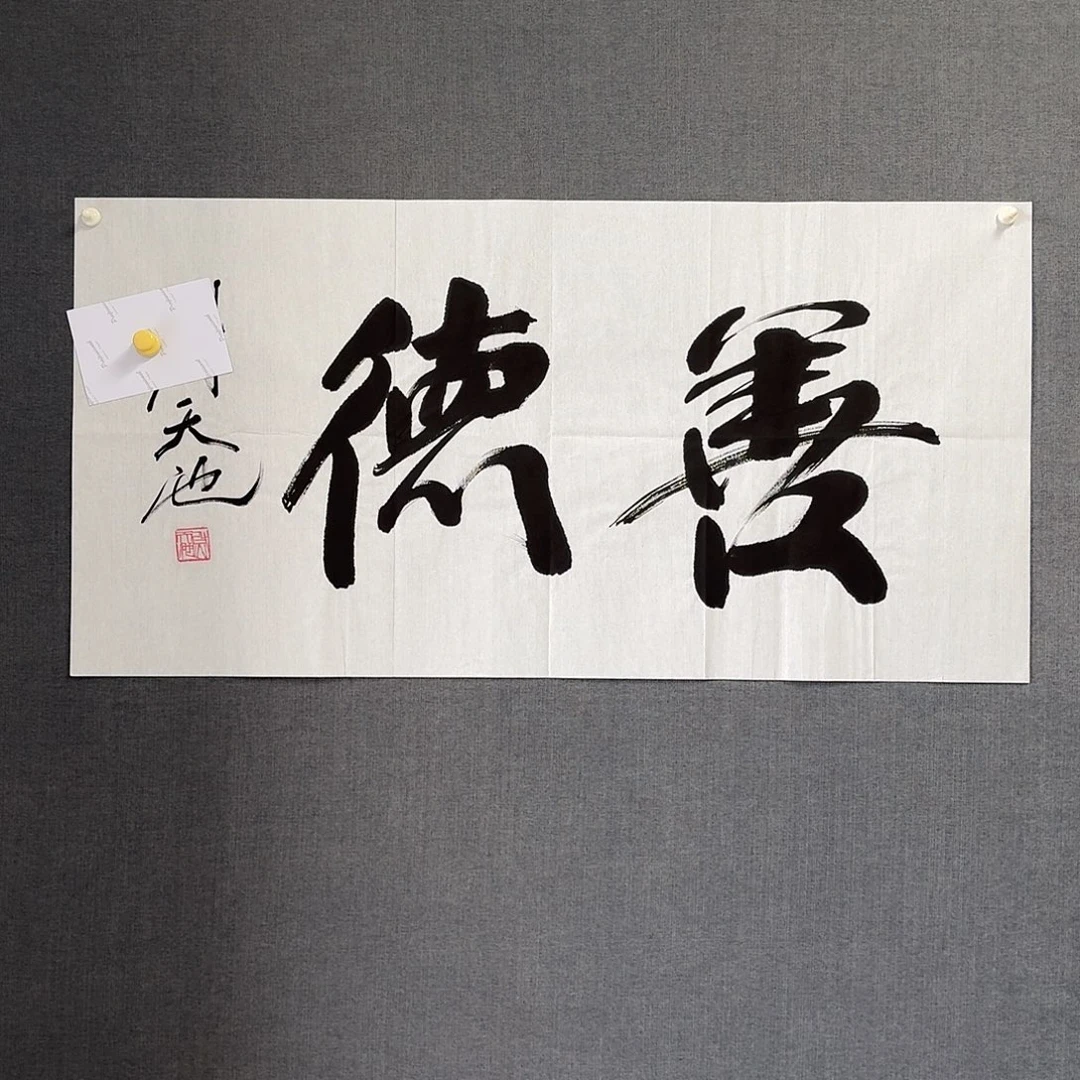 善德
天池